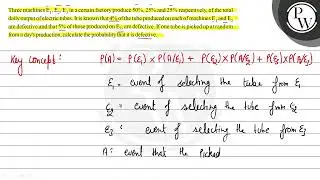 Three machines E₁, E₂, E₃ in a certain factory produce 50%, 25% and 25% respectively, of the total
daily output of electric tubes. It is known that 4% of the tube produced on each of machines E₁ and E₂
are defective and that 5% of those produced on E₃, are defective. If one tube is picked up at random
from a day's production, calculate the probability that it is defective.
PW
Key concept: P(A) = P(E₁) × P(A/E₁) + P(E₂) × P(A/E₂) + P(E₃) × P(A/E₃)
E₁ = event of selecting the tube from E₁
E₂ = event of selecting the tube from E₂
E₃ : event of selecting the tube from E₃
A: event that the picked